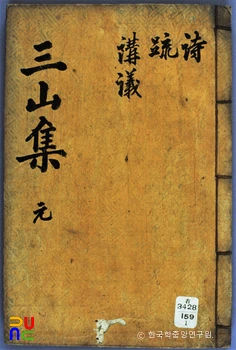 詩
疏
講議
三山集 元
古
3428
159
1
© 한국학중앙연구원